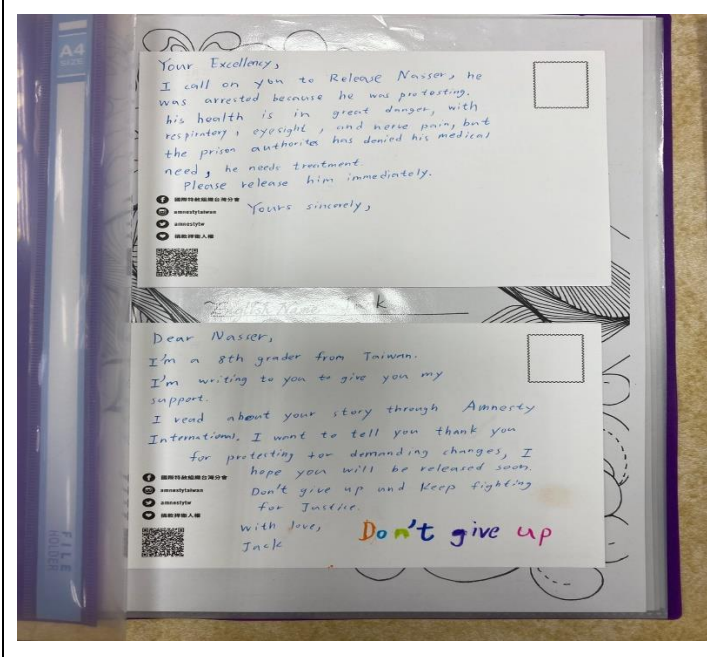 A4
SIZE
Your Excellency,
I call on you to Release Nasser, he
was arrested because he was protesting.
his health is in great danger, with
respiratory, eyesight, and nerve pain, but
the prison authorites has denied his medical
need, he needs treatment.
Please release him immediately.
Yours sincerely,
國際特赦組織台灣分會
amnestytaiwan
amnestytw
捐款捍衛人權
English Name
k
Dear Nasser,
I'm a 8th grader from Taiwan.
I'm writing to you to give you my
support.
I read about your story through Amnesty
International. I want to tell you thank you
for protesting for demanding changes, I
hope you will be released soon.
Don't give up and Keep fighting
for Justice.
With love,
Jack
Don't give up
國際特赦組織台灣分會
amnestytaiwan
amnestytw
捐款捍衛人權
FILE
HOLDER